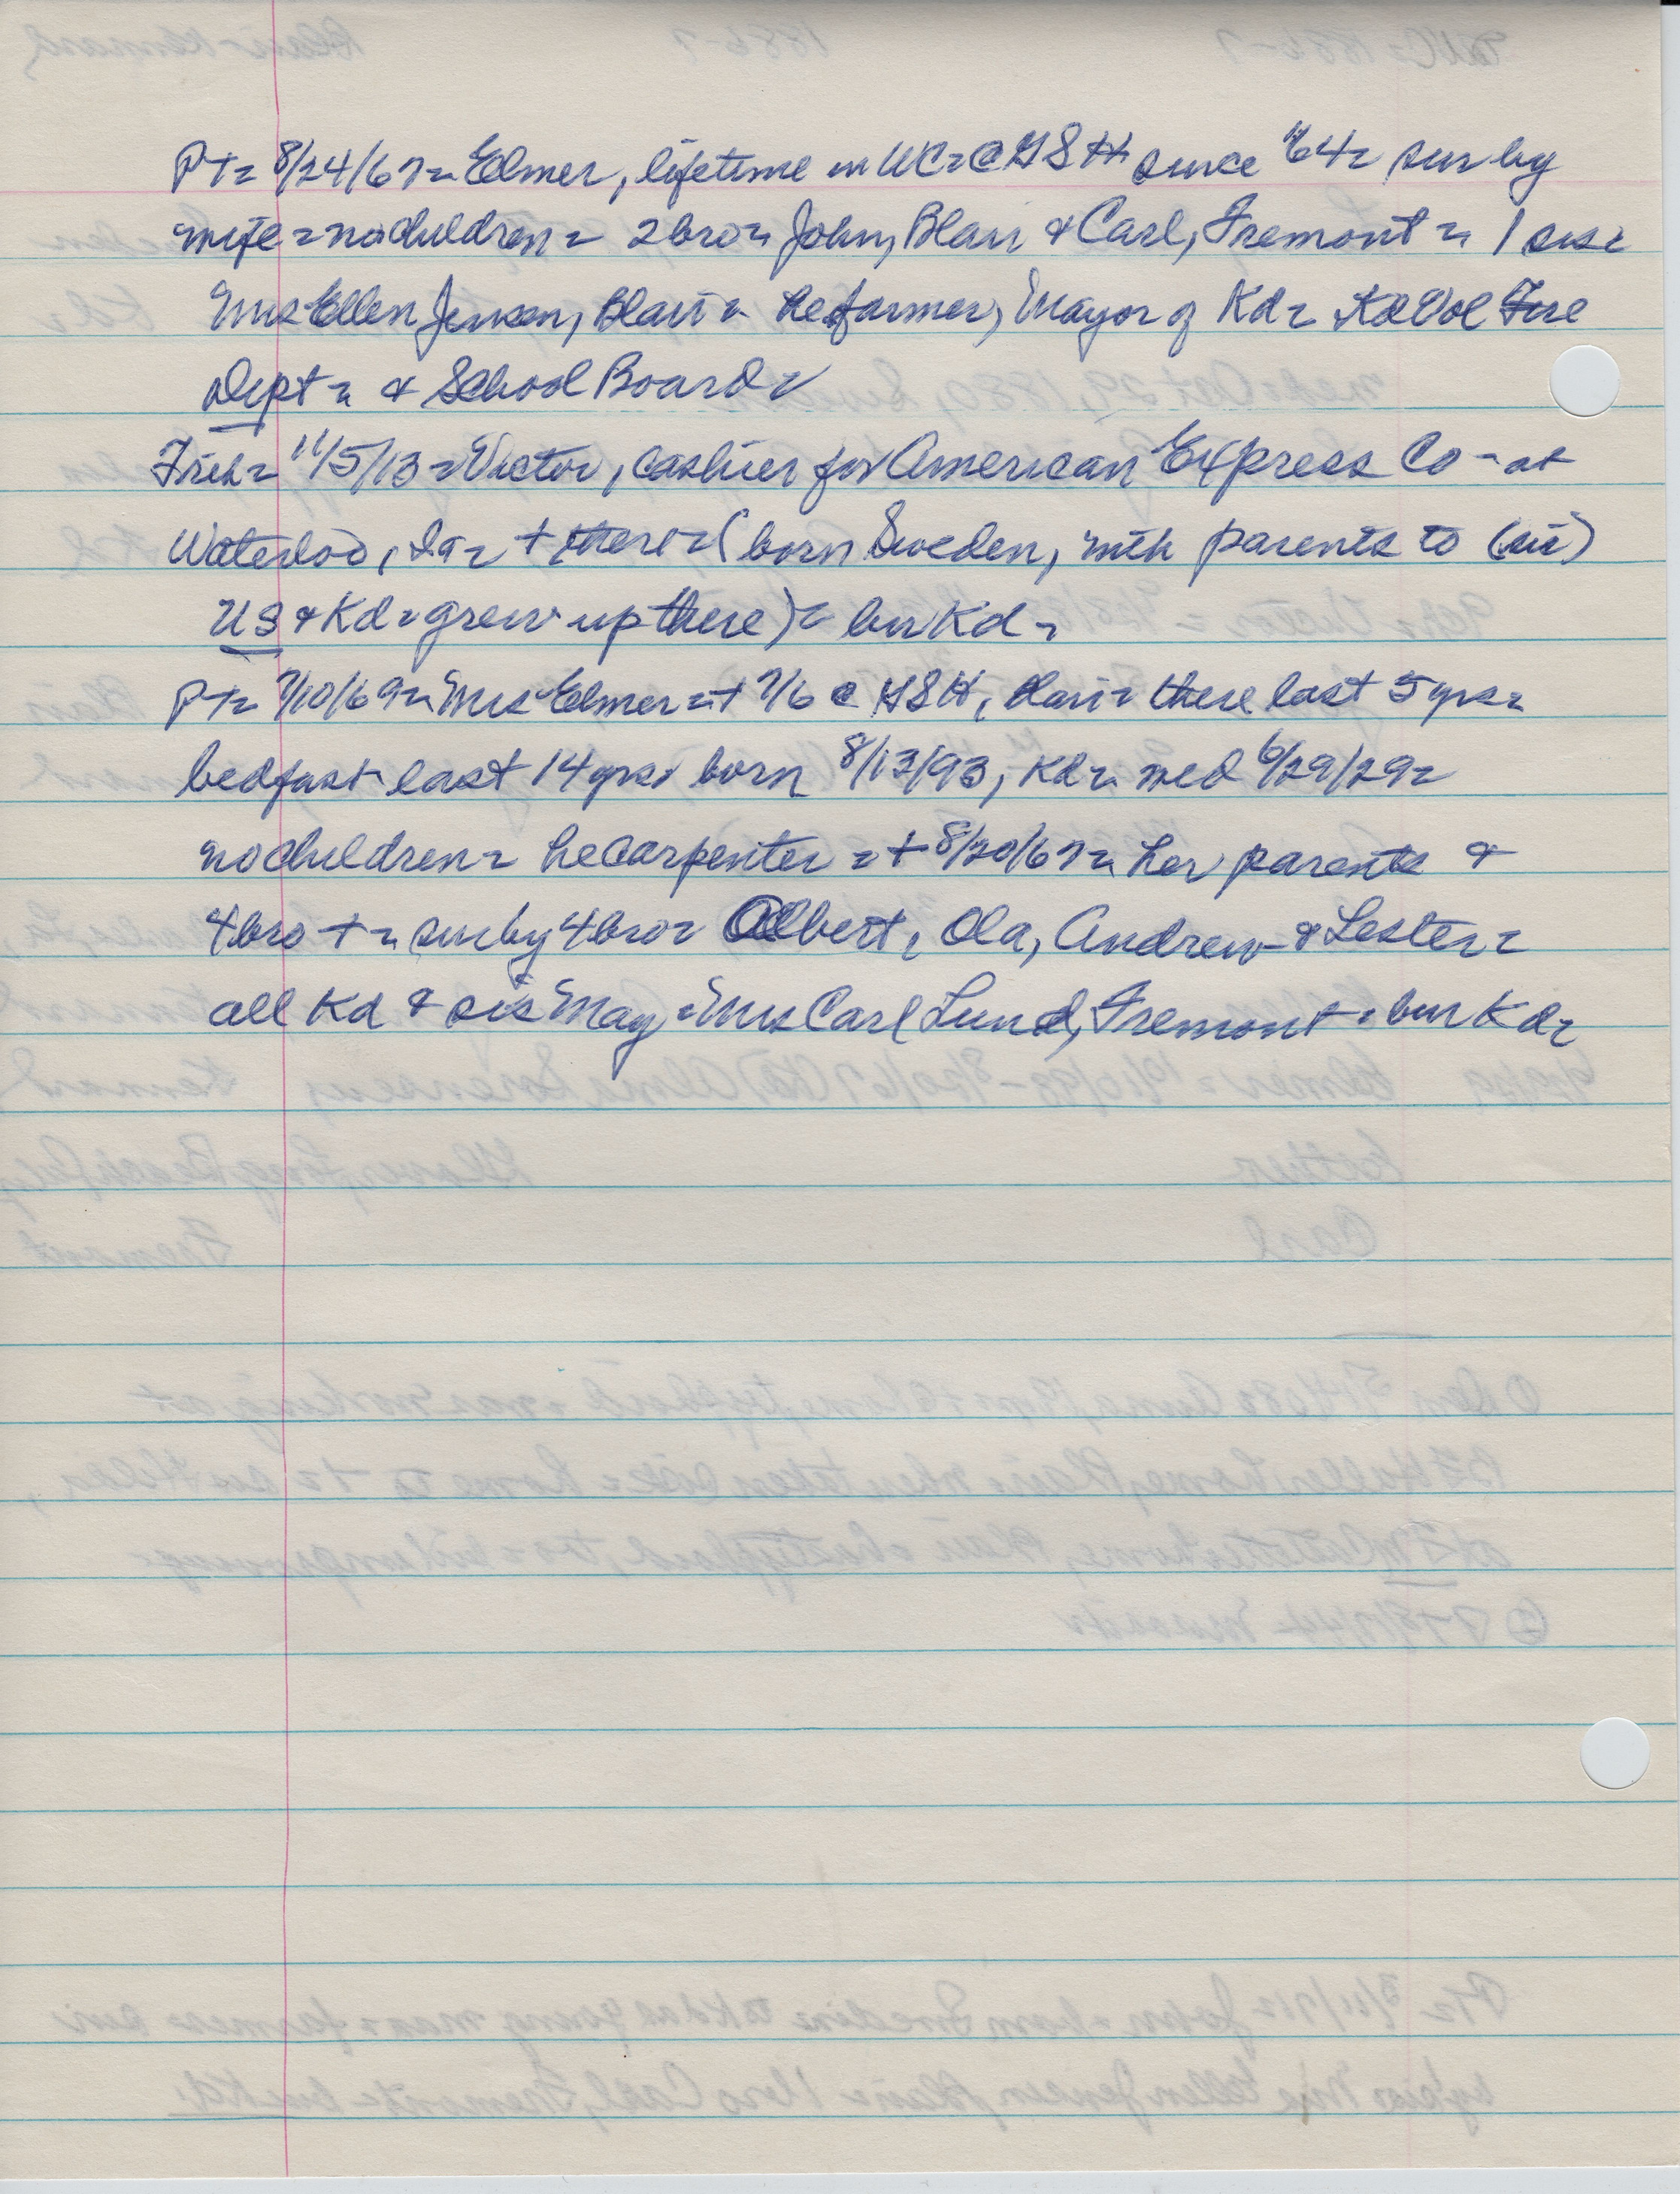 PT= 8/24/67= Elmer, lifetime in WC= @ GSH since '64= sur by
wife= no children= 2 bro= John, Blair & Carl, Fremont= 1 sis=
Mrs Ellen Jensen, Blair= he farmer, Mayor of Kd= Kd Vol Fire
Dept= & School Board=
Trib= 11/5/13= Victor, cashier for American Express Co - at
Waterloo, Ia= + there= (born Sweden, with parents to (sic)
US & Kd= grew up there)= bur Kd=
PT= 7/10/69= Mrs Elmer= + 7/6 @ GSH, Blair= there last 5 yrs=
bedfast last 14 yrs= born 8/13/93, Kd= med 6/29/29=
no children= he carpenter= + 8/20/67= her parents &
4 bro += sur by 4 bro= Albert, Ola, Andrew & Lester=
all Kd & sis May= Mrs Carl Lund, Fremont= bur Kd=